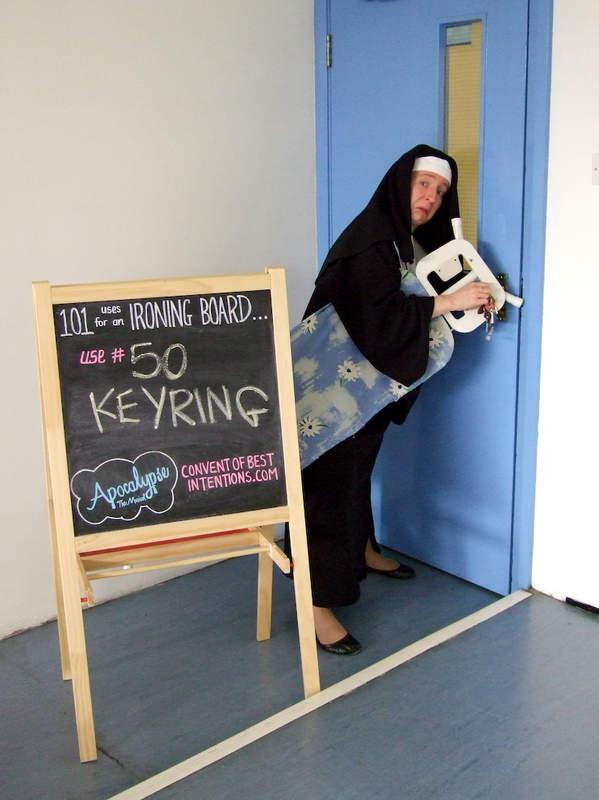 101 uses for an IRONING BOARD...
use # 50
KEYRING
Apocalypse
The Musical
CONVENT OF BEST
INTENTIONS.COM